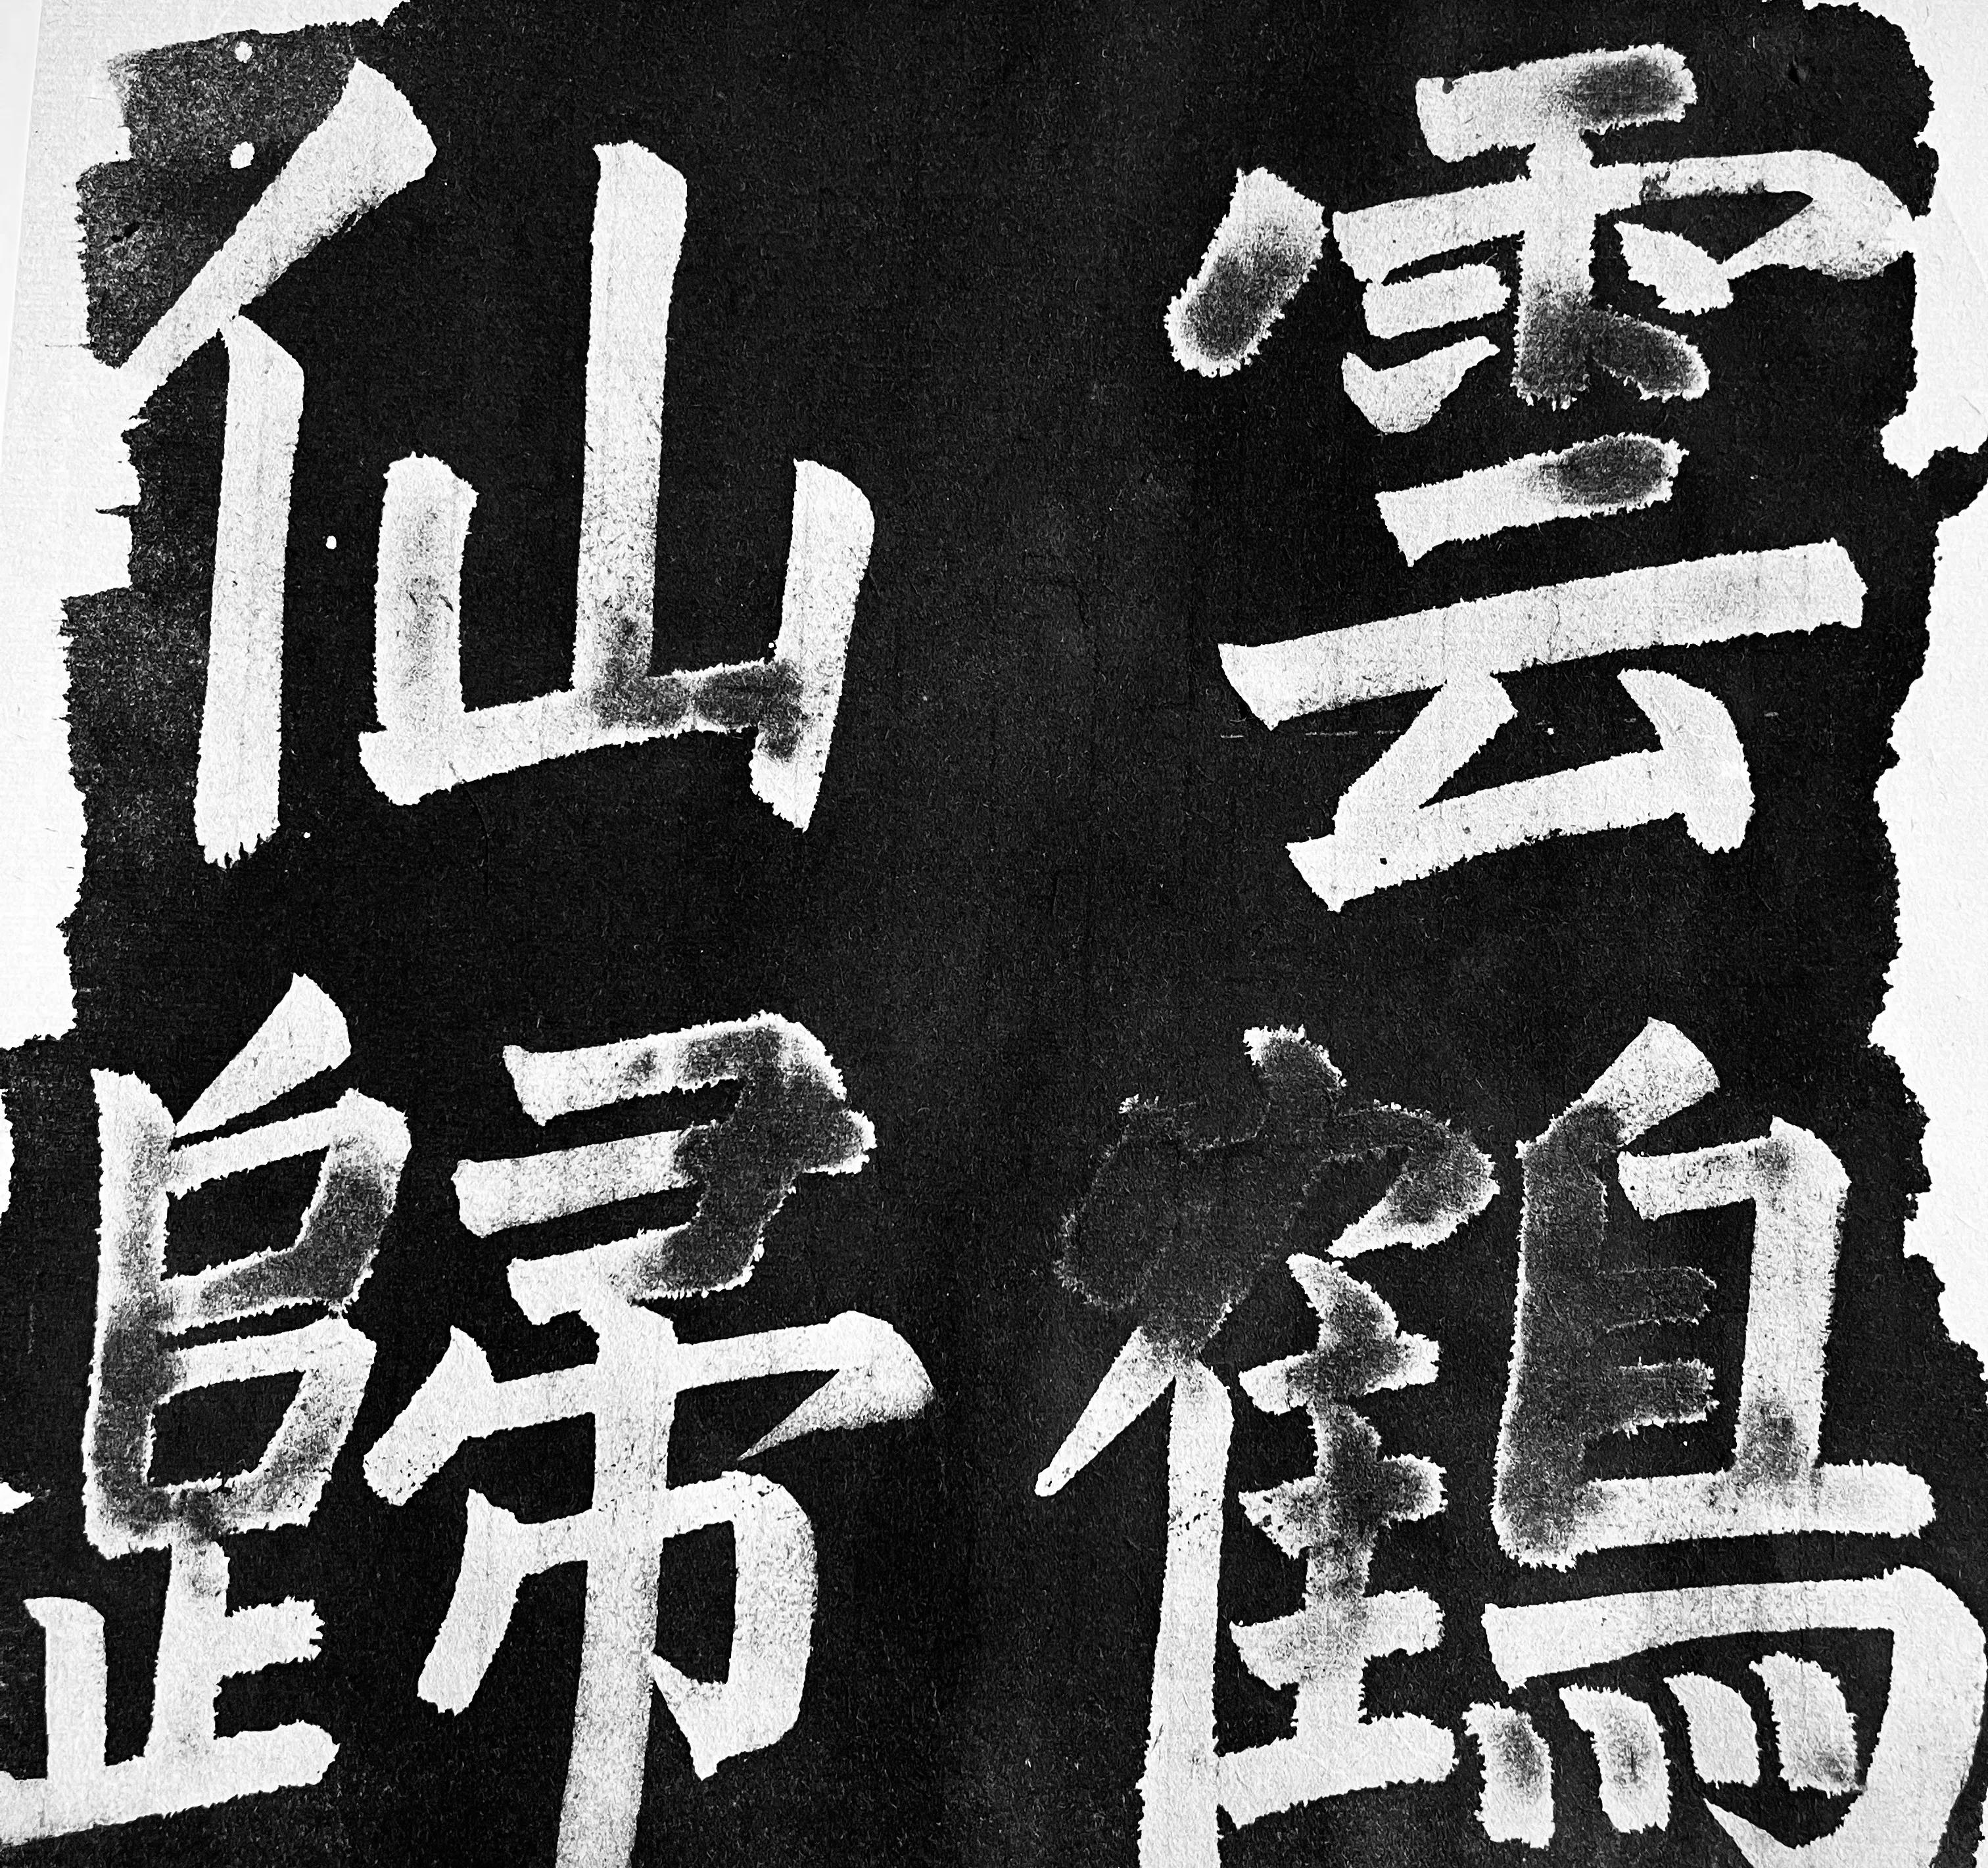 雲鶴
仙歸